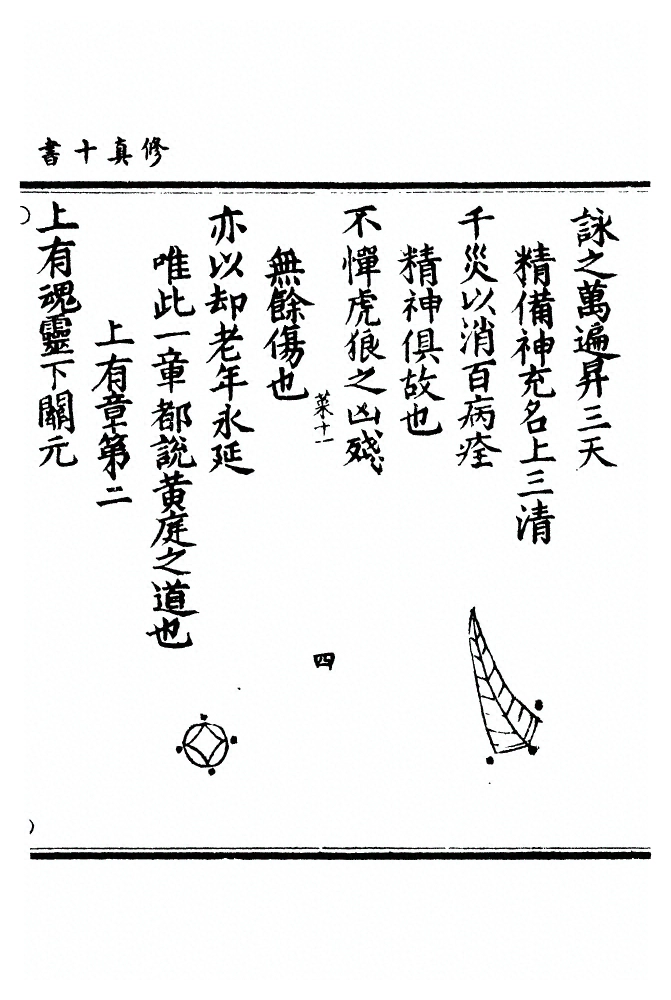 修真十書
詠之萬遍昇三天
精備神充名上三清
千災以消百病痊
精神俱故也
不憚虎狼之凶殘
菜十一
四
無餘傷也
亦以却老年永延
唯此一章都說黃庭之道也
上有章第二
上有魂靈下關元